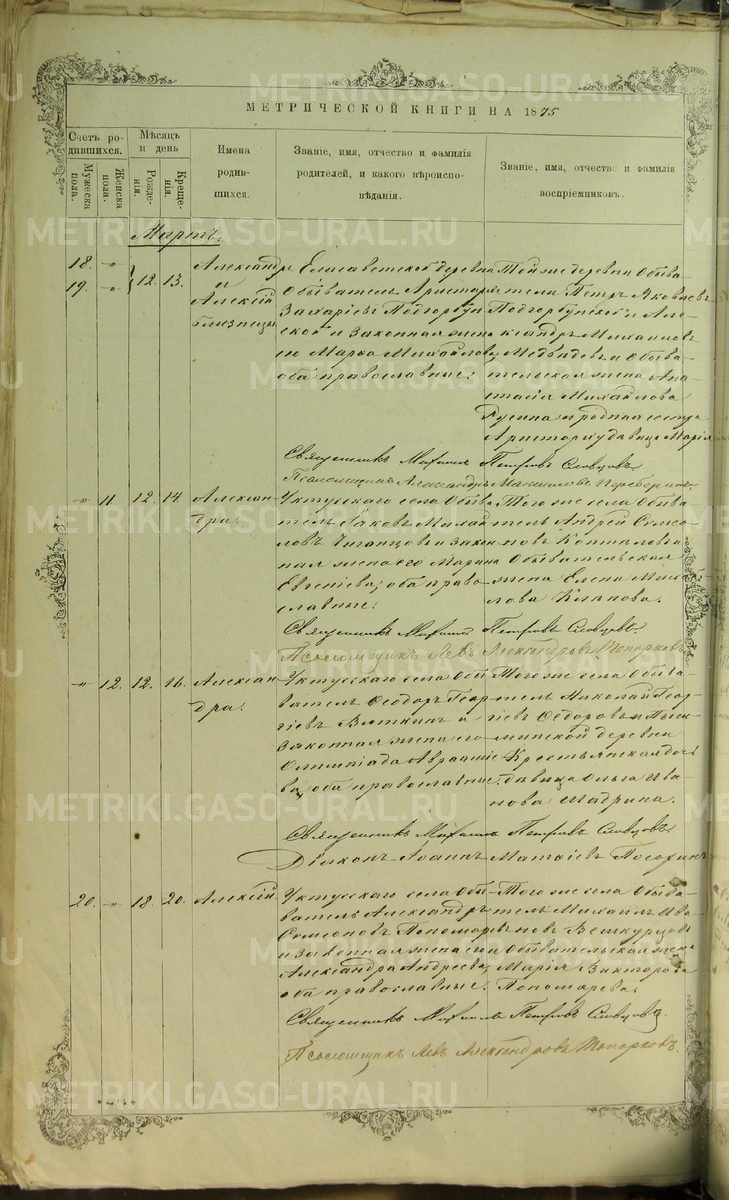 МЕТРИЧЕСКОЙ КНИГИ НА 1875
Счетъ ро-
дившихся.
Мужеска
пола.
Женска
пола.
Мѣсяцъ
и день
Рожде-
нія.
Креще-
нія.
Имена
родив-
шихся.
Званіе, имя, отчество и фамилія
родителей, и какого вѣроиспо-
вѣданія.
Званіе, имя, отчество и фамилія
воспріемниковъ.
Мартъ.
18. " 12. 13.
19. "
Александръ
и
Алексій
близнецы
Елисаветской деревни
Обыватель Аристархъ
Захаріевъ Подгорбун-
ской и законная жена
его Марѳа Михайлова,
оба православные.
Той же деревни Обыва-
тели Петръ Яковлевъ
Подгорбунской и Але-
ксандръ Михаиловъ
Медвѣдевъ и Обыва-
тельская жена Ана-
стасія Михайлова
Русина и родная сестра
Аристарху дѣвица Марія
Священникъ Михаилъ Петровъ Словцовъ.
Псаломщикъ Александръ
" 11 12. 14. Алексан-
дра.
Уктусскаго села Обыва-
тель Іаковъ Михай-
ловъ и закон-
ная жена его Марина
Евгеніева, оба право-
славные.
Того же села Обыва-
тель Андрей Симео-
новъ и
Обывательская
жена Елена Михай-
лова
Священникъ Михаилъ Петровъ Словцовъ.
Псаломщикъ Левъ Александровъ Топорковъ
" 12. 12. 16. Алексан-
дра.
Уктусскаго села Обы-
ватель Ѳеодоръ Геор-
гіевъ Вяткинъ и
законная жена его
Олимпіада Аврамие-
ва, оба православные.
Того же села Обыва-
тель Николай Геор-
гіевъ Ѳедоровъ и
деревни
Крестьянская до-
дѣвица Ольга Ива-
нова Шадрина.
Священникъ Михаилъ Петровъ Словцовъ.
Діаконъ Іоаннъ Матѳіевъ
20. " 18. 20. Алексій.
Уктусскаго села Обы-
ватель Александръ
Симеоновъ Пономаревъ
и законная жена его
Александра Андреева,
оба православные.
Того же села Обыва-
тель Михаилъ Ива-
новъ
и Обывательская жена
Марія Викторова
Пономарева.
Священникъ Михаилъ Петровъ Словцовъ.
Псаломщикъ Левъ Александровъ Топорковъ.
METRIKI.GASO-URAL.RU
METRIKI.GASO-URAL.RU
METRIKI.GASO-URAL.RU
METRIKI.GASO-URAL.RU
METRIKI.GASO-URAL.RU
METRIKI.GASO-URAL.RU
METRIKI.GASO-URAL.RU
METRIKI.GASO-URAL.RU